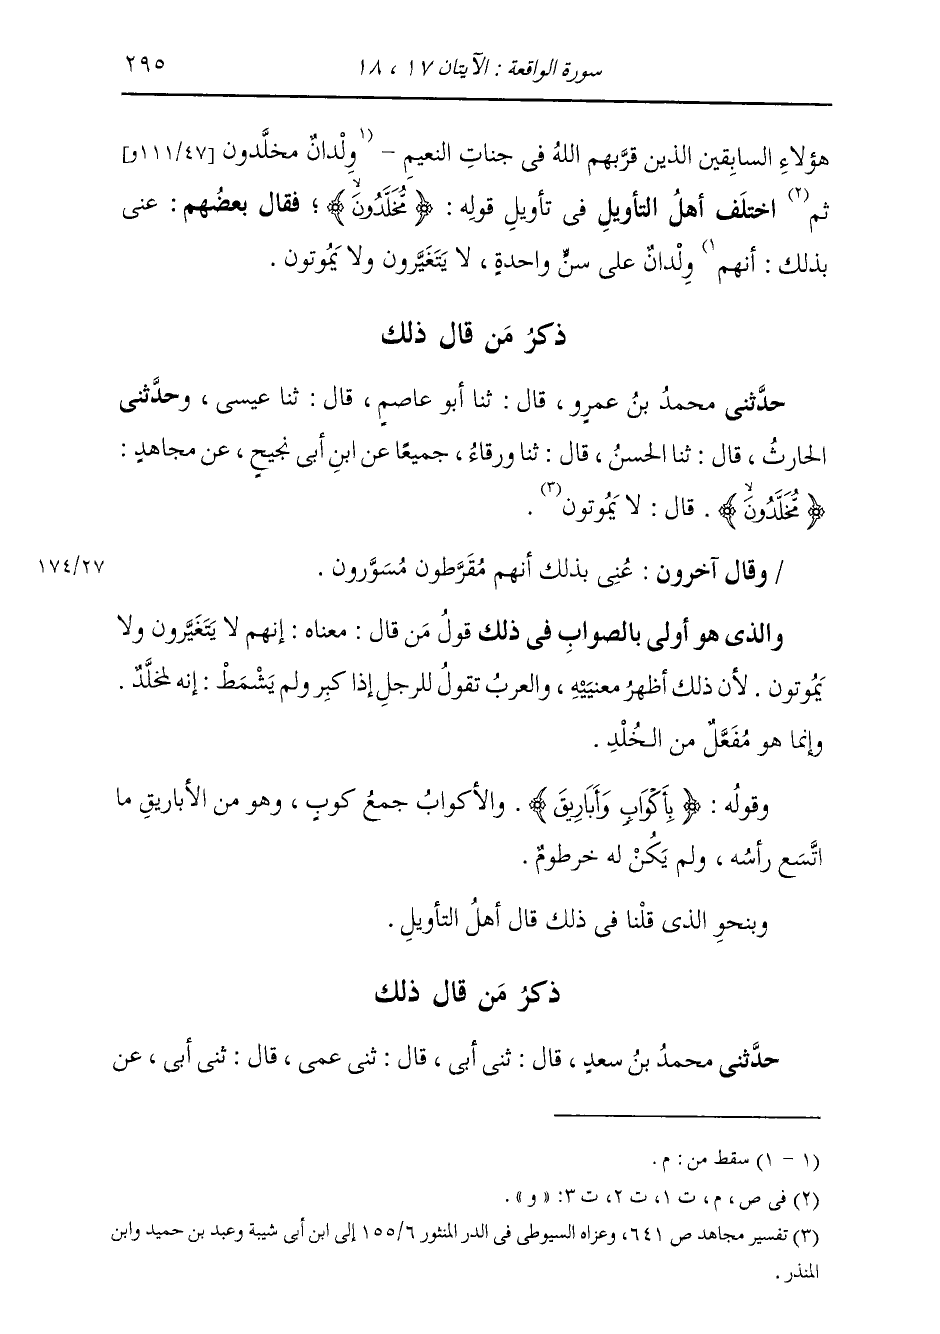 سورة الواقعة : الآيتان ١٧ ، ١٨ ٢٩٥
هؤلاءِ السابِقين الذين قرَّبهم اللهُ فى جناتِ النعيمِ – (١وِلْدانٌ مخلَّدون [٤٧/١١١و]
ثم(٢) اختلَف أهلُ التأويلِ فى تأويلِ قولِه : ﴿ مُّخَلَّدُونَۙ ﴾ ؛ فقال بعضُهم : عنى
بذلك : أنهم١) وِلْدانٌ على سنٍّ واحدةٍ ، لا يَتَغَيَّرون ولا يَمُوتون .
ذكرُ مَن قال ذلك
حدَّثنى محمدُ بنُ عمرٍو ، قال : ثنا أبو عاصمٍ ، قال : ثنا عيسى ، وحدَّثنى
الحارثُ ، قال : ثنا الحسنُ ، قال : ثنا ورقاءُ ، جميعًا عن ابنِ أبى نجيحٍ ، عن مجاهدٍ :
﴿ مُّخَلَّدُونَۙ ﴾ . قال : لا يَمُوتون(٣) .
/ وقال آخرون : عُنِى بذلك أنهم مُقَرَّطون مُسَوَّرون . ١٧٤/٢٧
والذى هو أولى بالصوابِ فى ذلك قولُ مَن قال : معناه : إنهم لا يَتَغَيَّرون ولا
يَمُوتون . لأن ذلك أظهرُ معنيَيْهِ ، والعربُ تقولُ للرجلِ إذا كبِر ولم يَشْمَطْ : إنه لمخلَّدٌ .
وإنما هو مُفَعَّلٌ من الخُلْدِ .
وقولُه : ﴿ بِأَكْوَابٍ وَأَبَارِيقَ ﴾ . والأكوابُ جمعُ كوبٍ ، وهو من الأباريقِ ما
اتَّسَع رأسُه ، ولم يَكُنْ له خرطومٌ .
وبنحوِ الذى قلْنا فى ذلك قال أهلُ التأويلِ .
ذكرُ مَن قال ذلك
حدَّثنى محمدُ بنُ سعدٍ ، قال : ثنى أبى ، قال : ثنى عمى ، قال : ثنى أبى ، عن
(١ – ١) سقط من : م .
(٢) فى ص ، م ، ت ١، ت ٢، ت ٣: « و » .
(٣) تفسير مجاهد ص ٦٤١، وعزاه السيوطى فى الدر المنثور ١٥٥/٦ إلى ابن أبى شيبة وعبد بن حميد وابن
المنذر .